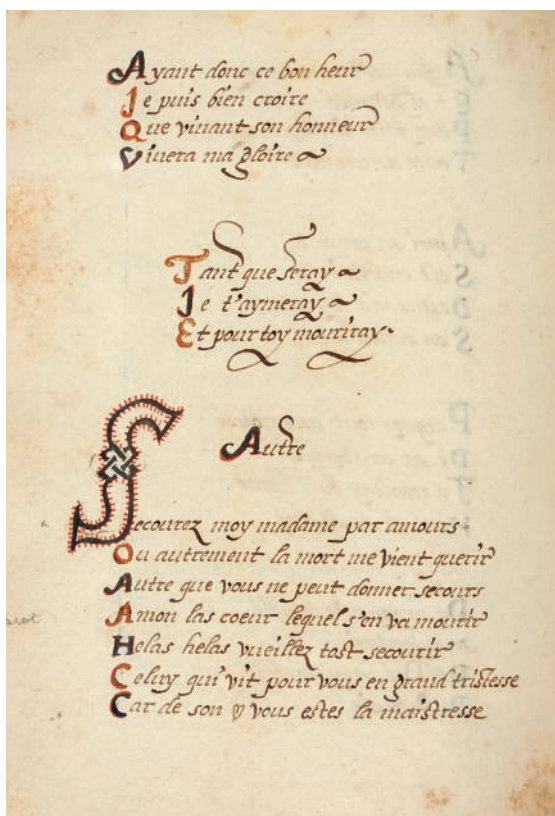 Ayant donc ce bon heur
Je puis bien croire
Que vivant son honneur
Vivera ma gloire
Tant que seray
Je t'aymeray
Et pour toy mouriray.
Autre
Secourez moy madame par amours
Ou autrement la mort me vient querir
Autre que vous ne peut donner secours
A mon las coeur lequel s'en va mourir
Helas helas vueillez tost secourir
Celuy qui vit pour vous en grand tristesse
Car de son vous estes la maistresse